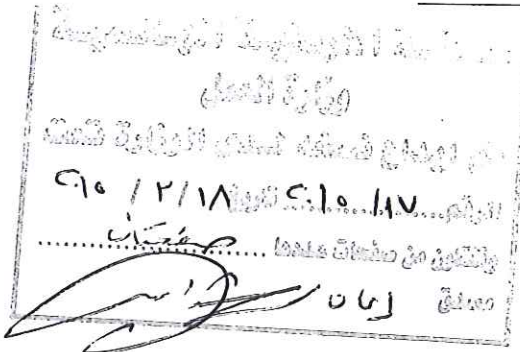 المملكة الأردنية الهاشمية
وزارة العمل
تم إيداع نسخة لدى الوزارة تحت
الرقم ٢٠١٥/١٧ تاريخ ٢٠١٥/٢/١٨
وتتكون من صفحات عددها صفحتان
مصدق